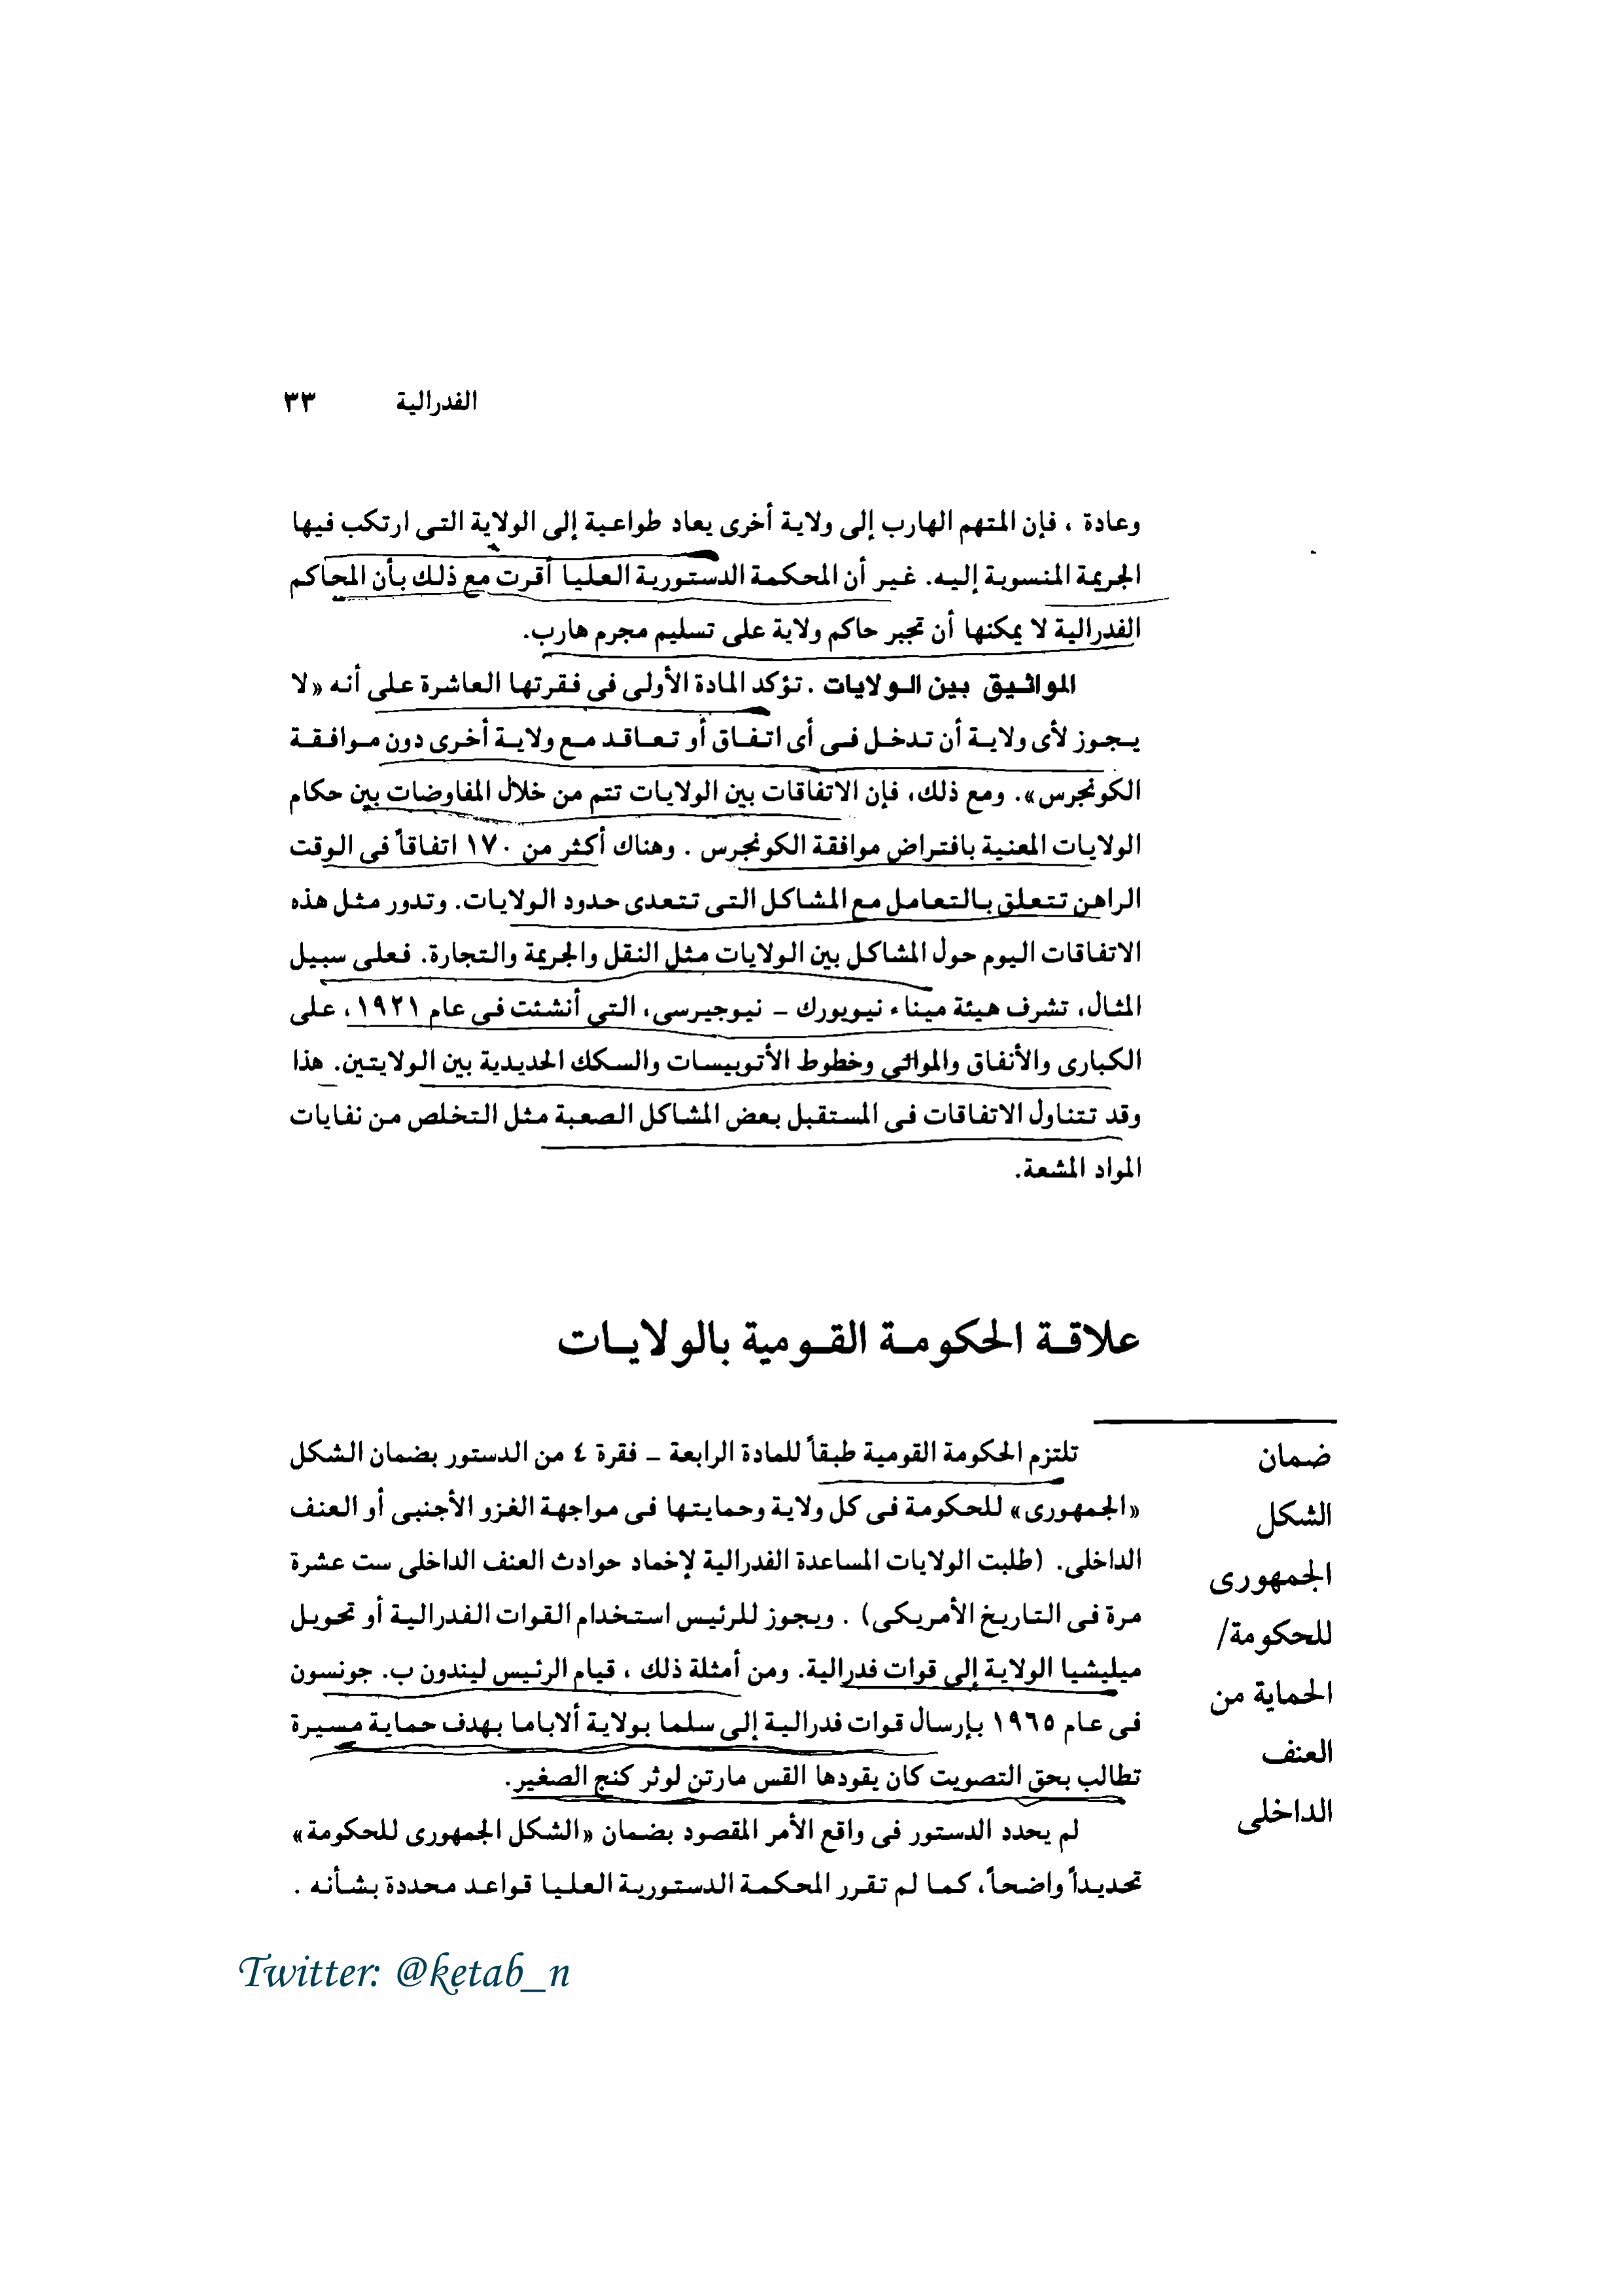 الفدرالية ٣٣
وعادة ، فإن المتهم الهارب إلى ولاية أخرى يعاد طواعية إلى الولاية التى ارتكب فيها
الجريمة المنسوبة إليه. غير أن المحكمة الدستورية العليا أقرت مع ذلك بأن المحاكم
الفدرالية لا يمكنها أن تجبر حاكم ولاية على تسليم مجرم هارب.
المواثيق بين الولايات . تؤكد المادة الأولى فى فقرتها العاشرة على أنه «لا
يجوز لأى ولاية أن تدخل فى أى اتفاق أو تعاقد مع ولاية أخرى دون موافقة
الكونجرس». ومع ذلك، فإن الاتفاقات بين الولايات تتم من خلال المفاوضات بين حكام
الولايات المعنية بافتراض موافقة الكونجرس . وهناك أكثر من ١٧٠ اتفاقاً فى الوقت
الراهن تتعلق بالتعامل مع المشاكل التى تتعدى حدود الولايات. وتدور مثل هذه
الاتفاقات اليوم حول المشاكل بين الولايات مثل النقل والجريمة والتجارة. فعلى سبيل
المثال، تشرف هيئة ميناء نيويورك – نيوجيرسى، التى أنشئت فى عام ١٩٢١، على
الكبارى والأنفاق والموانى وخطوط الأتوبيسات والسكك الحديدية بين الولايتين. هذا
وقد تتناول الاتفاقات فى المستقبل بعض المشاكل الصعبة مثل التخلص من نفايات
المواد المشعة.
علاقة الحكومة القومية بالولايات
ضمان
الشكل
الجمهورى
للحكومة/
الحماية من
العنف
الداخلى
تلتزم الحكومة القومية طبقاً للمادة الرابعة – فقرة ٤ من الدستور بضمان الشكل
«الجمهورى» للحكومة فى كل ولاية وحمايتها فى مواجهة الغزو الأجنبى أو العنف
الداخلى. (طلبت الولايات المساعدة الفدرالية لإخماد حوادث العنف الداخلى ست عشرة
مرة فى التاريخ الأمريكى) . ويجوز للرئيس استخدام القوات الفدرالية أو تحويل
ميليشيا الولاية إلى قوات فدرالية. ومن أمثلة ذلك ، قيام الرئيس ليندون ب. جونسون
فى عام ١٩٦٥ بإرسال قوات فدرالية إلى سلما بولاية ألاباما بهدف حماية مسيرة
تطالب بحق التصويت كان يقودها القس مارتن لوثر كنج الصغير.
لم يحدد الدستور فى واقع الأمر المقصود بضمان «الشكل الجمهورى للحكومة»
تحديداً واضحاً، كما لم تقرر المحكمة الدستورية العليا قواعد محددة بشأنه .
Twitter: @ketab_n